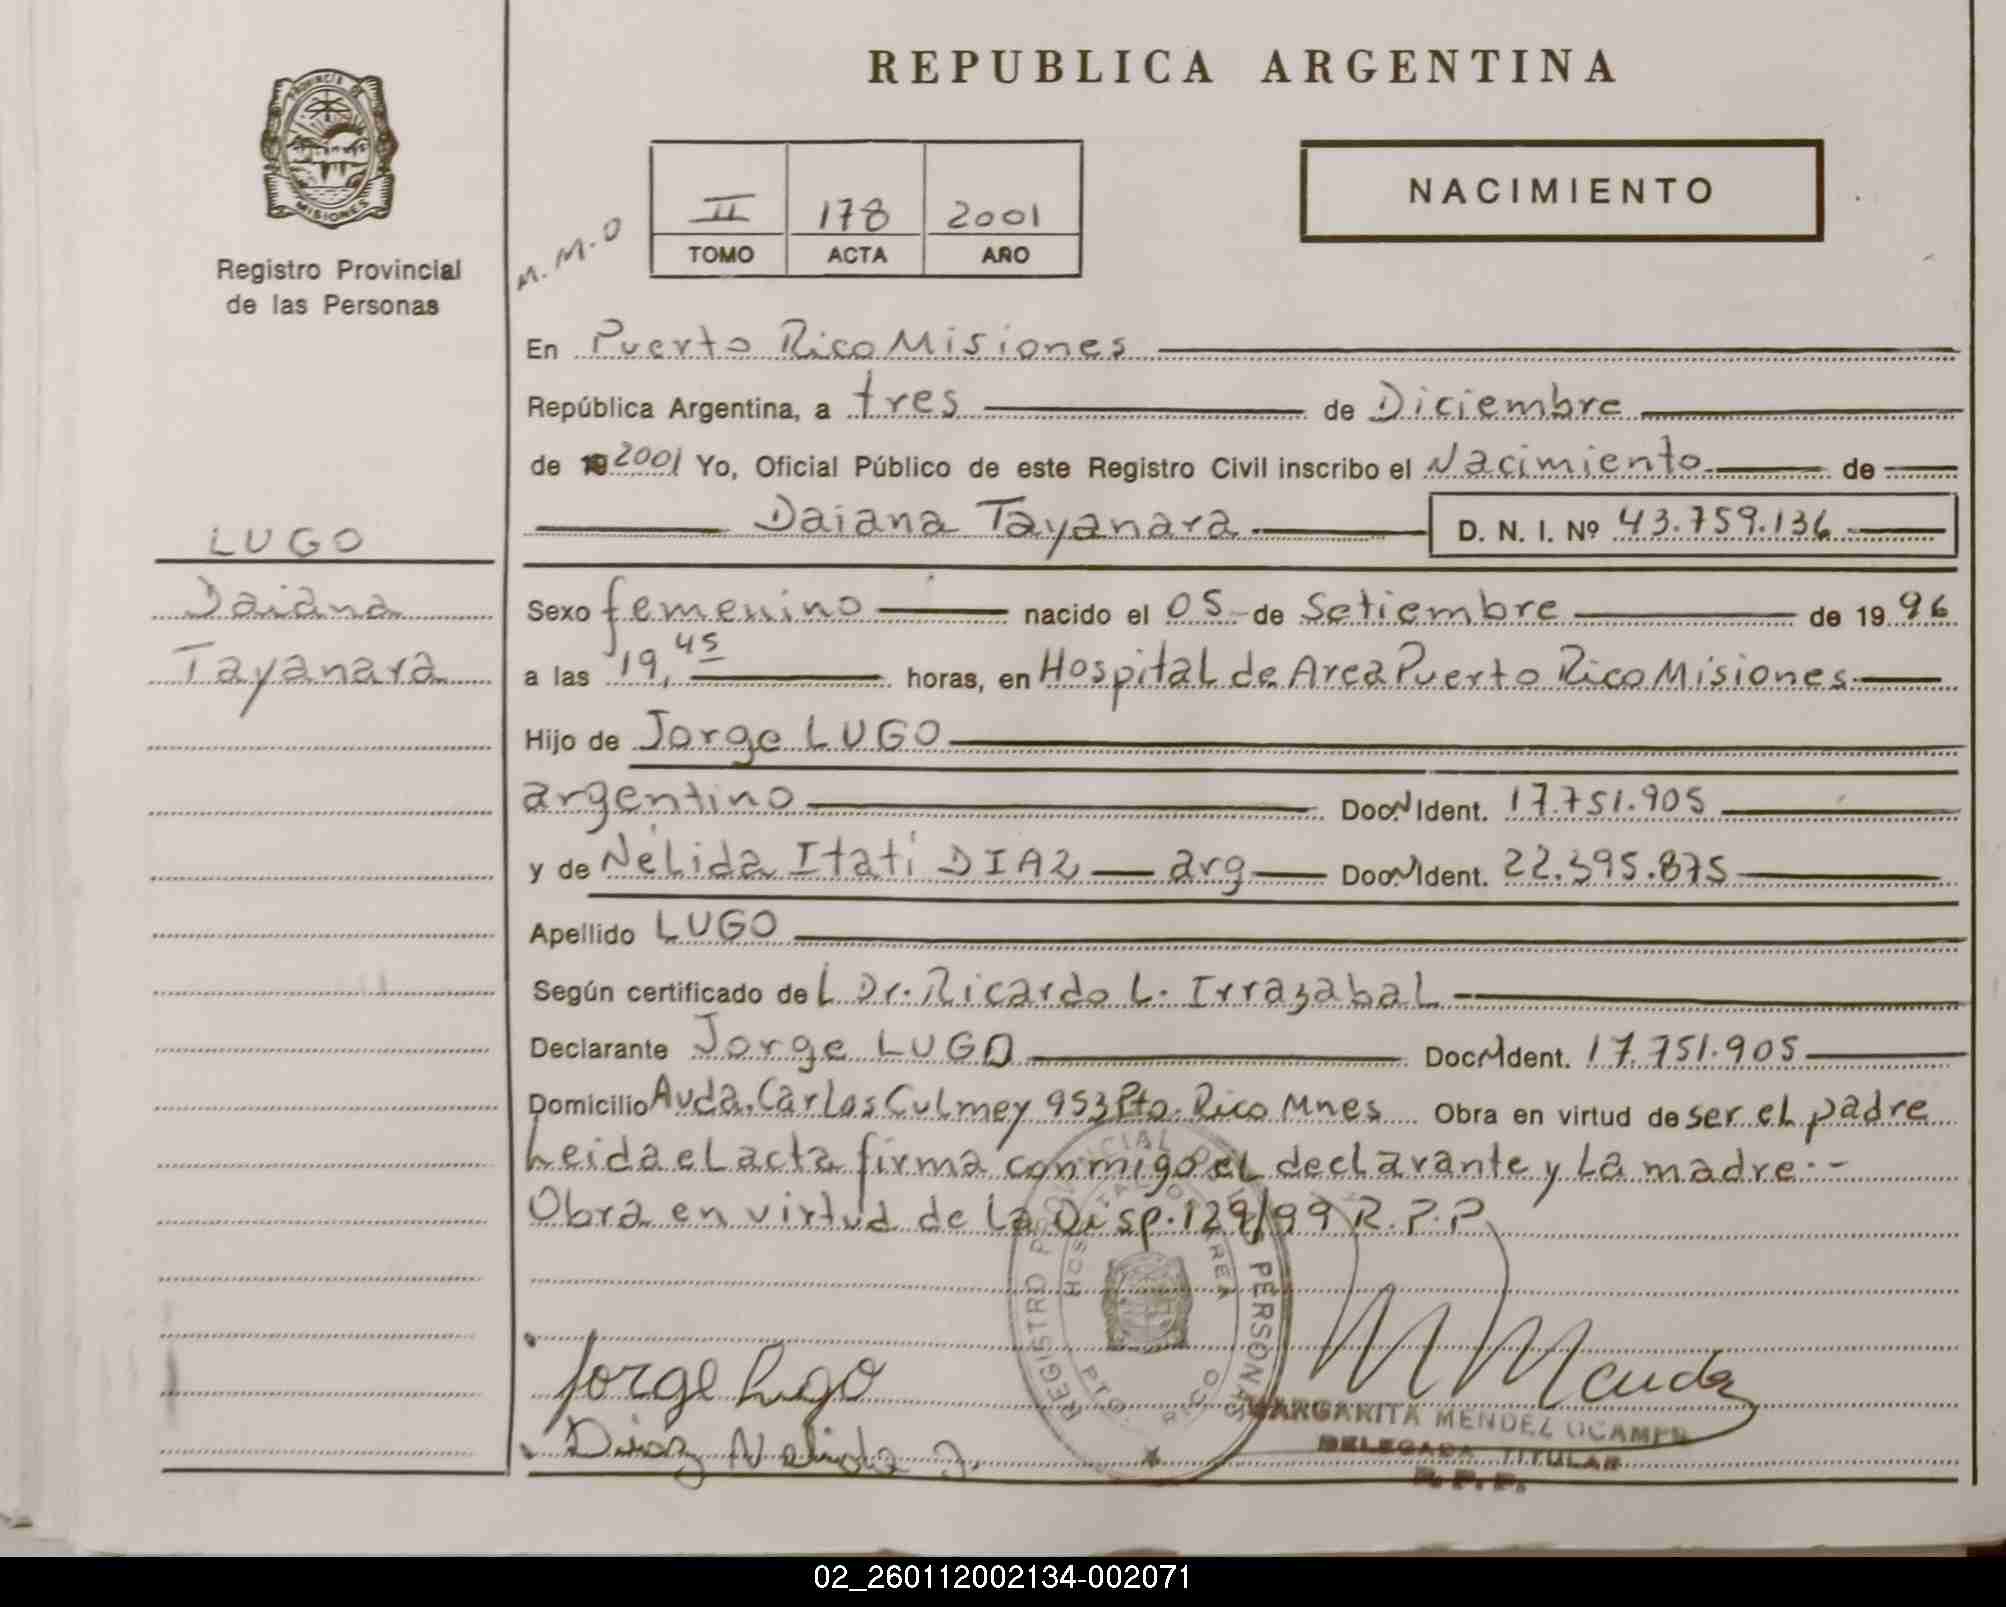 REPUBLICA ARGENTINA
PROVINCIA DE
MISIONES
Registro Provincial
de las Personas
NACIMIENTO
M.M.O
II 178 2001
TOMO ACTA AÑO
En Puerto Rico Misiones
República Argentina, a tres de Diciembre
de 19 2001 Yo, Oficial Público de este Registro Civil inscribo el Nacimiento de
Daiana Tayanara D. N. I. Nº 43.759.136
LUGO
Daiana
Tayanara
Sexo femenino nacido el 05 de Setiembre de 19 96
a las 19,45 horas, en Hospital de Area Puerto Rico Misiones
Hijo de Jorge LUGO
argentino Doc.N Ident. 17.751.905
y de Nélida Itatí DIAZ arg Doc.N Ident. 22.395.875
Apellido LUGO
Según certificado de L Dr. Ricardo L. Irrazabal
Declarante Jorge LUGO Doc.N Ident. 17.751.905
Domicilio Avda. Carlos Culmey 953 Pto. Rico Mnes Obra en virtud de ser el padre
Leida el acta firma conmigo el declarante y la madre.-
Obra en virtud de la Disp. 129/99 R.P.P.
REGISTRO PERSONAS
HOSPITAL DE AREA
PTO. RICO
Jorge Lugo
Diaz Nelida I.
M Mendez
MARGARITA MENDEZ OCAMPO
DELEGADA TITULAR
R.P.P.
02_260112002134-002071